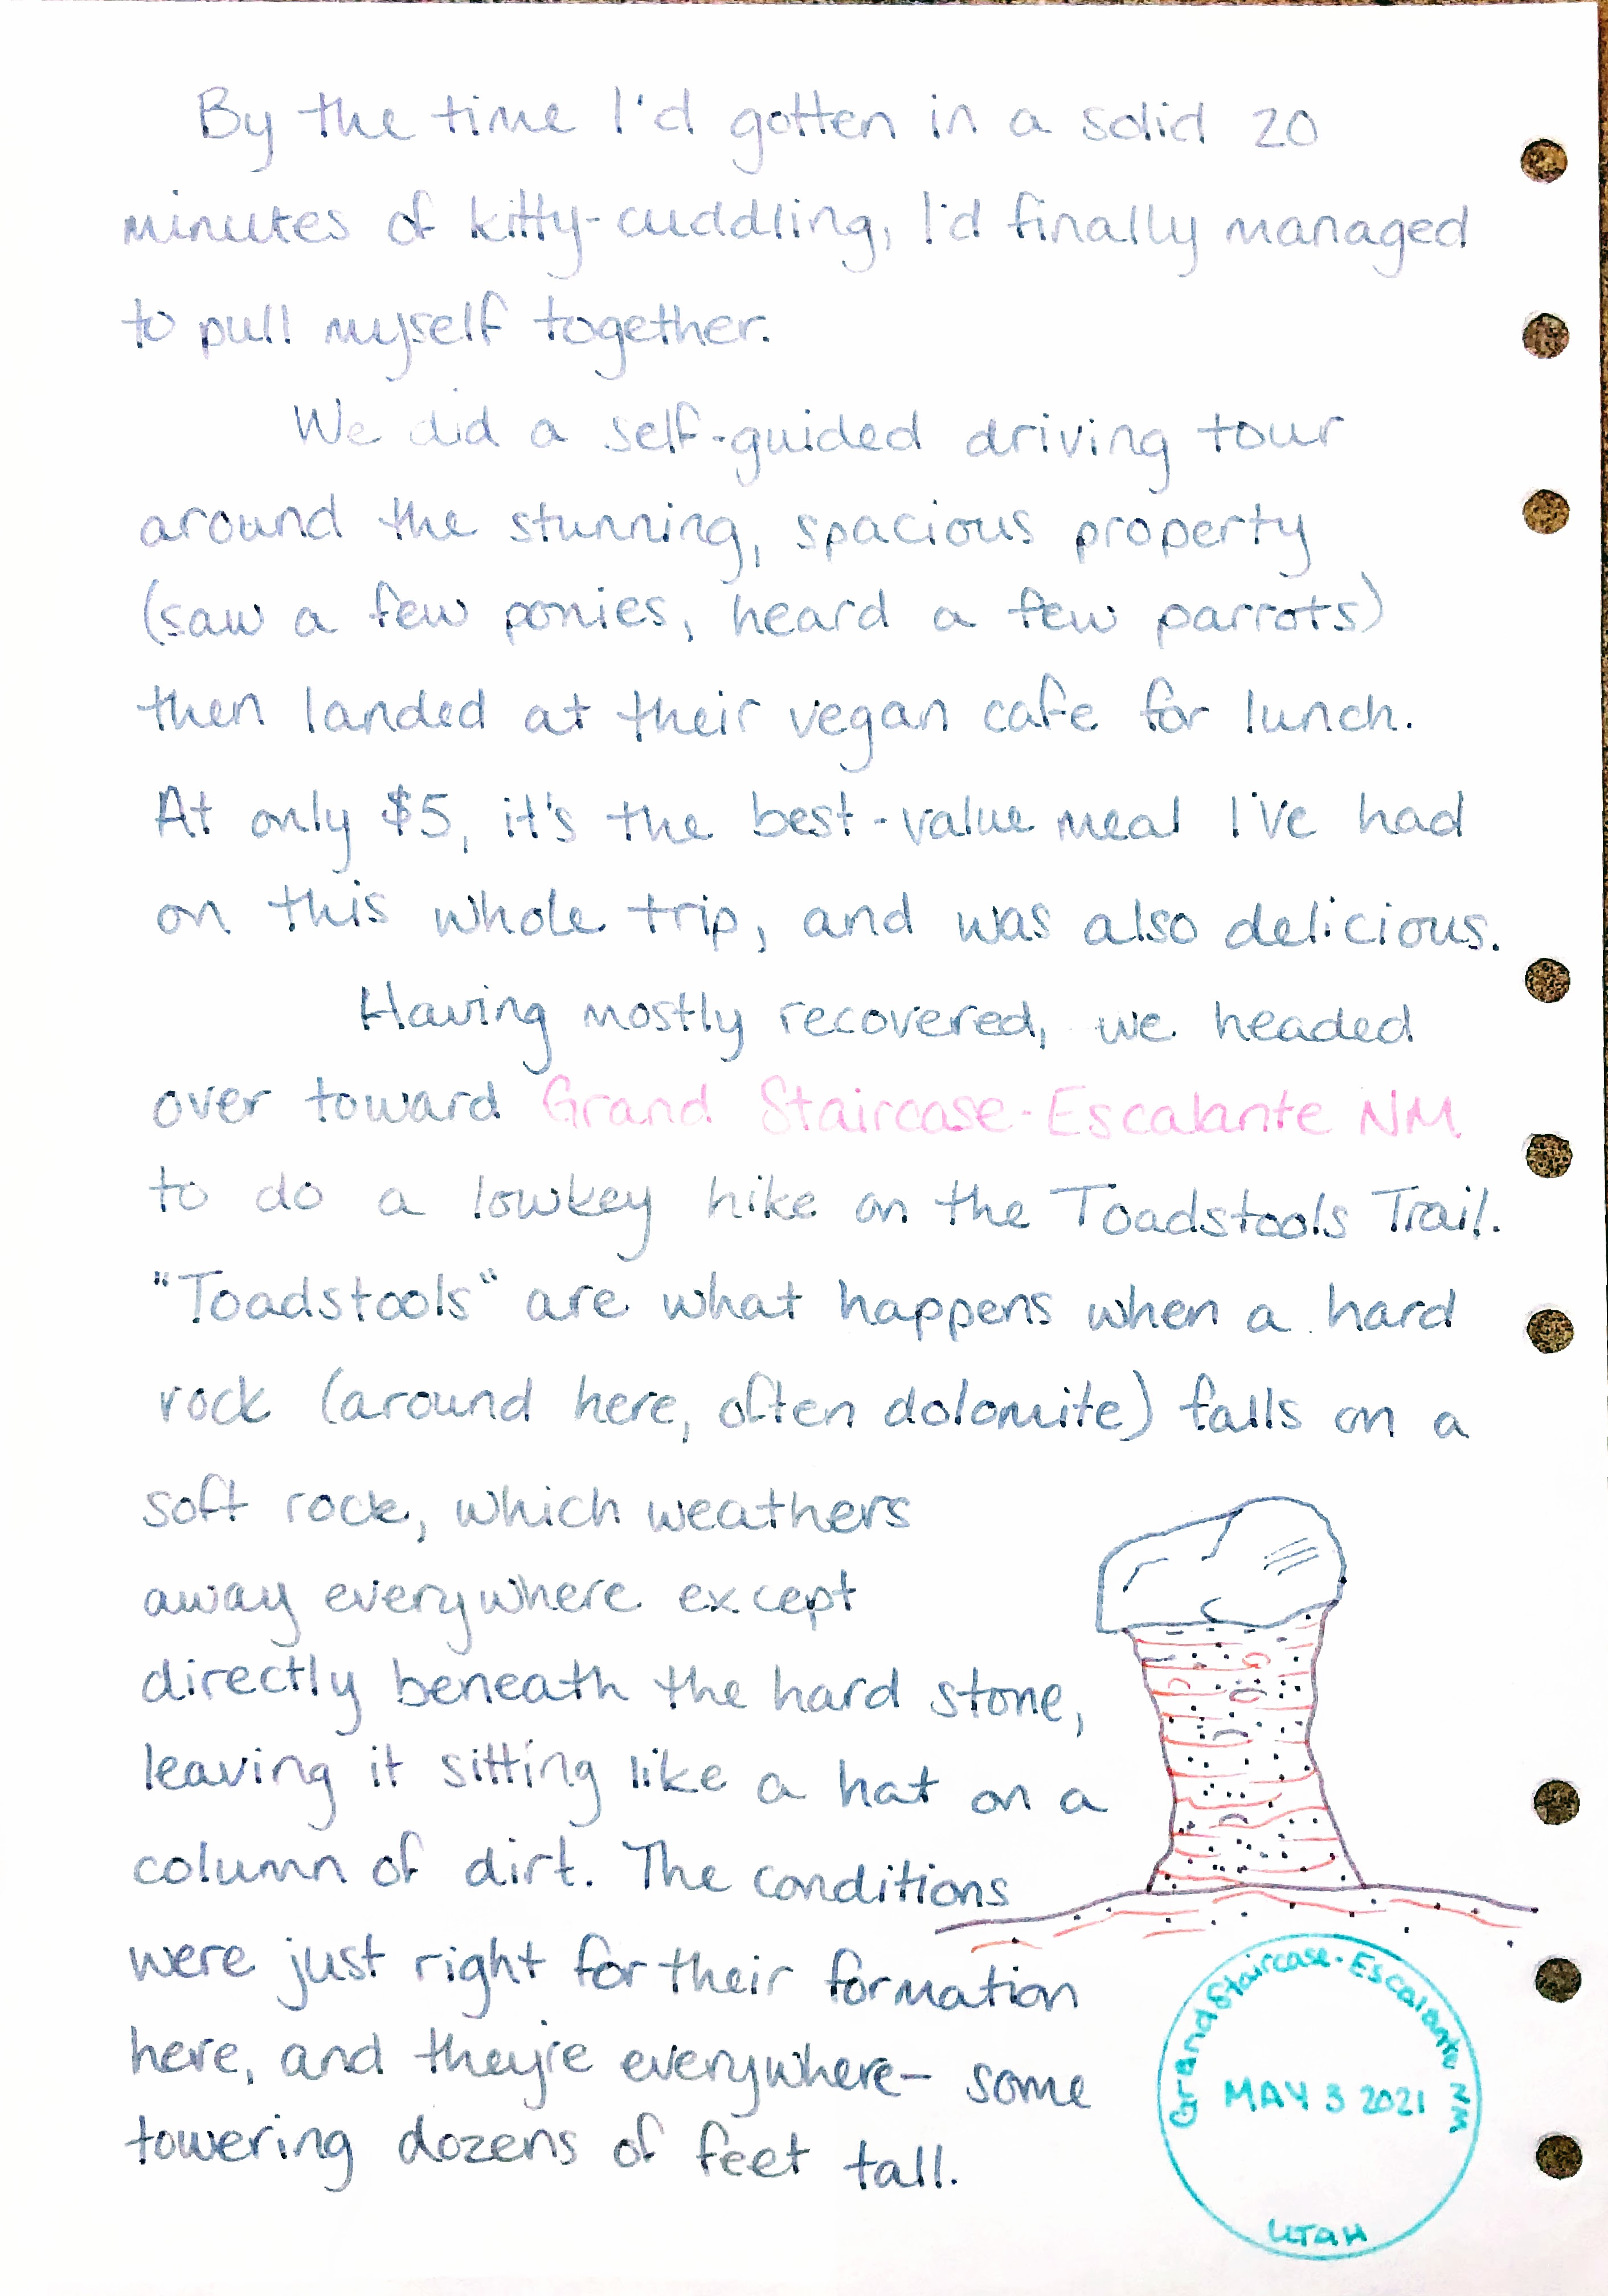 By the time I'd gotten in a solid 20
minutes of kitty-cuddling, I'd finally managed
to pull myself together.
We did a self-guided driving tour
around the stunning, spacious property
(saw a few ponies, heard a few parrots)
then landed at their vegan cafe for lunch.
At only $5, it's the best-value meal I've had
on this whole trip, and was also delicious.
Having mostly recovered, we headed
over toward Grand Staircase-Escalante NM
to do a lowkey hike on the Toadstools Trail.
"Toadstools" are what happens when a hard
rock (around here, often dolomite) falls on a
soft rock, which weathers
away everywhere except
directly beneath the hard stone,
leaving it sitting like a hat on a
column of dirt. The conditions
were just right for their formation
here, and they're everywhere- some
towering dozens of feet tall.
Grand Staircase-Escalante NM
MAY 3 2021
UTAH